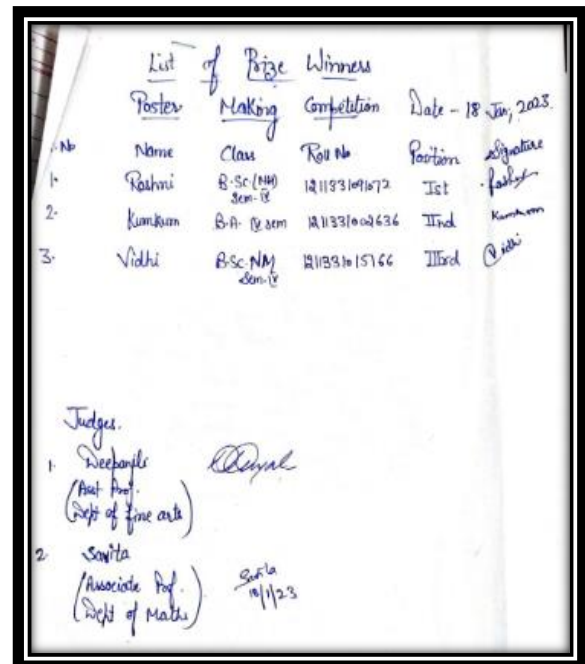 List of Prize Winners
Poster Making Competition Date - 18 Jan, 2023.
.No Name Class Roll No Position Signature
1. Rashni B.Sc.(NM) Sem-IV 1211331091072 Ist
2. Kumkum B.A. IV sem 1211331002636 IInd Kumkum
3. Vidhi B.Sc NM Sem-IV 1211331015166 IIIrd Vidhi
Judges.
1. Deepanjli
(Asst Prof.
Dept of fine arts)
2. Savita
(Associate Prof.
Dept of Maths)
Savita
18/1/23